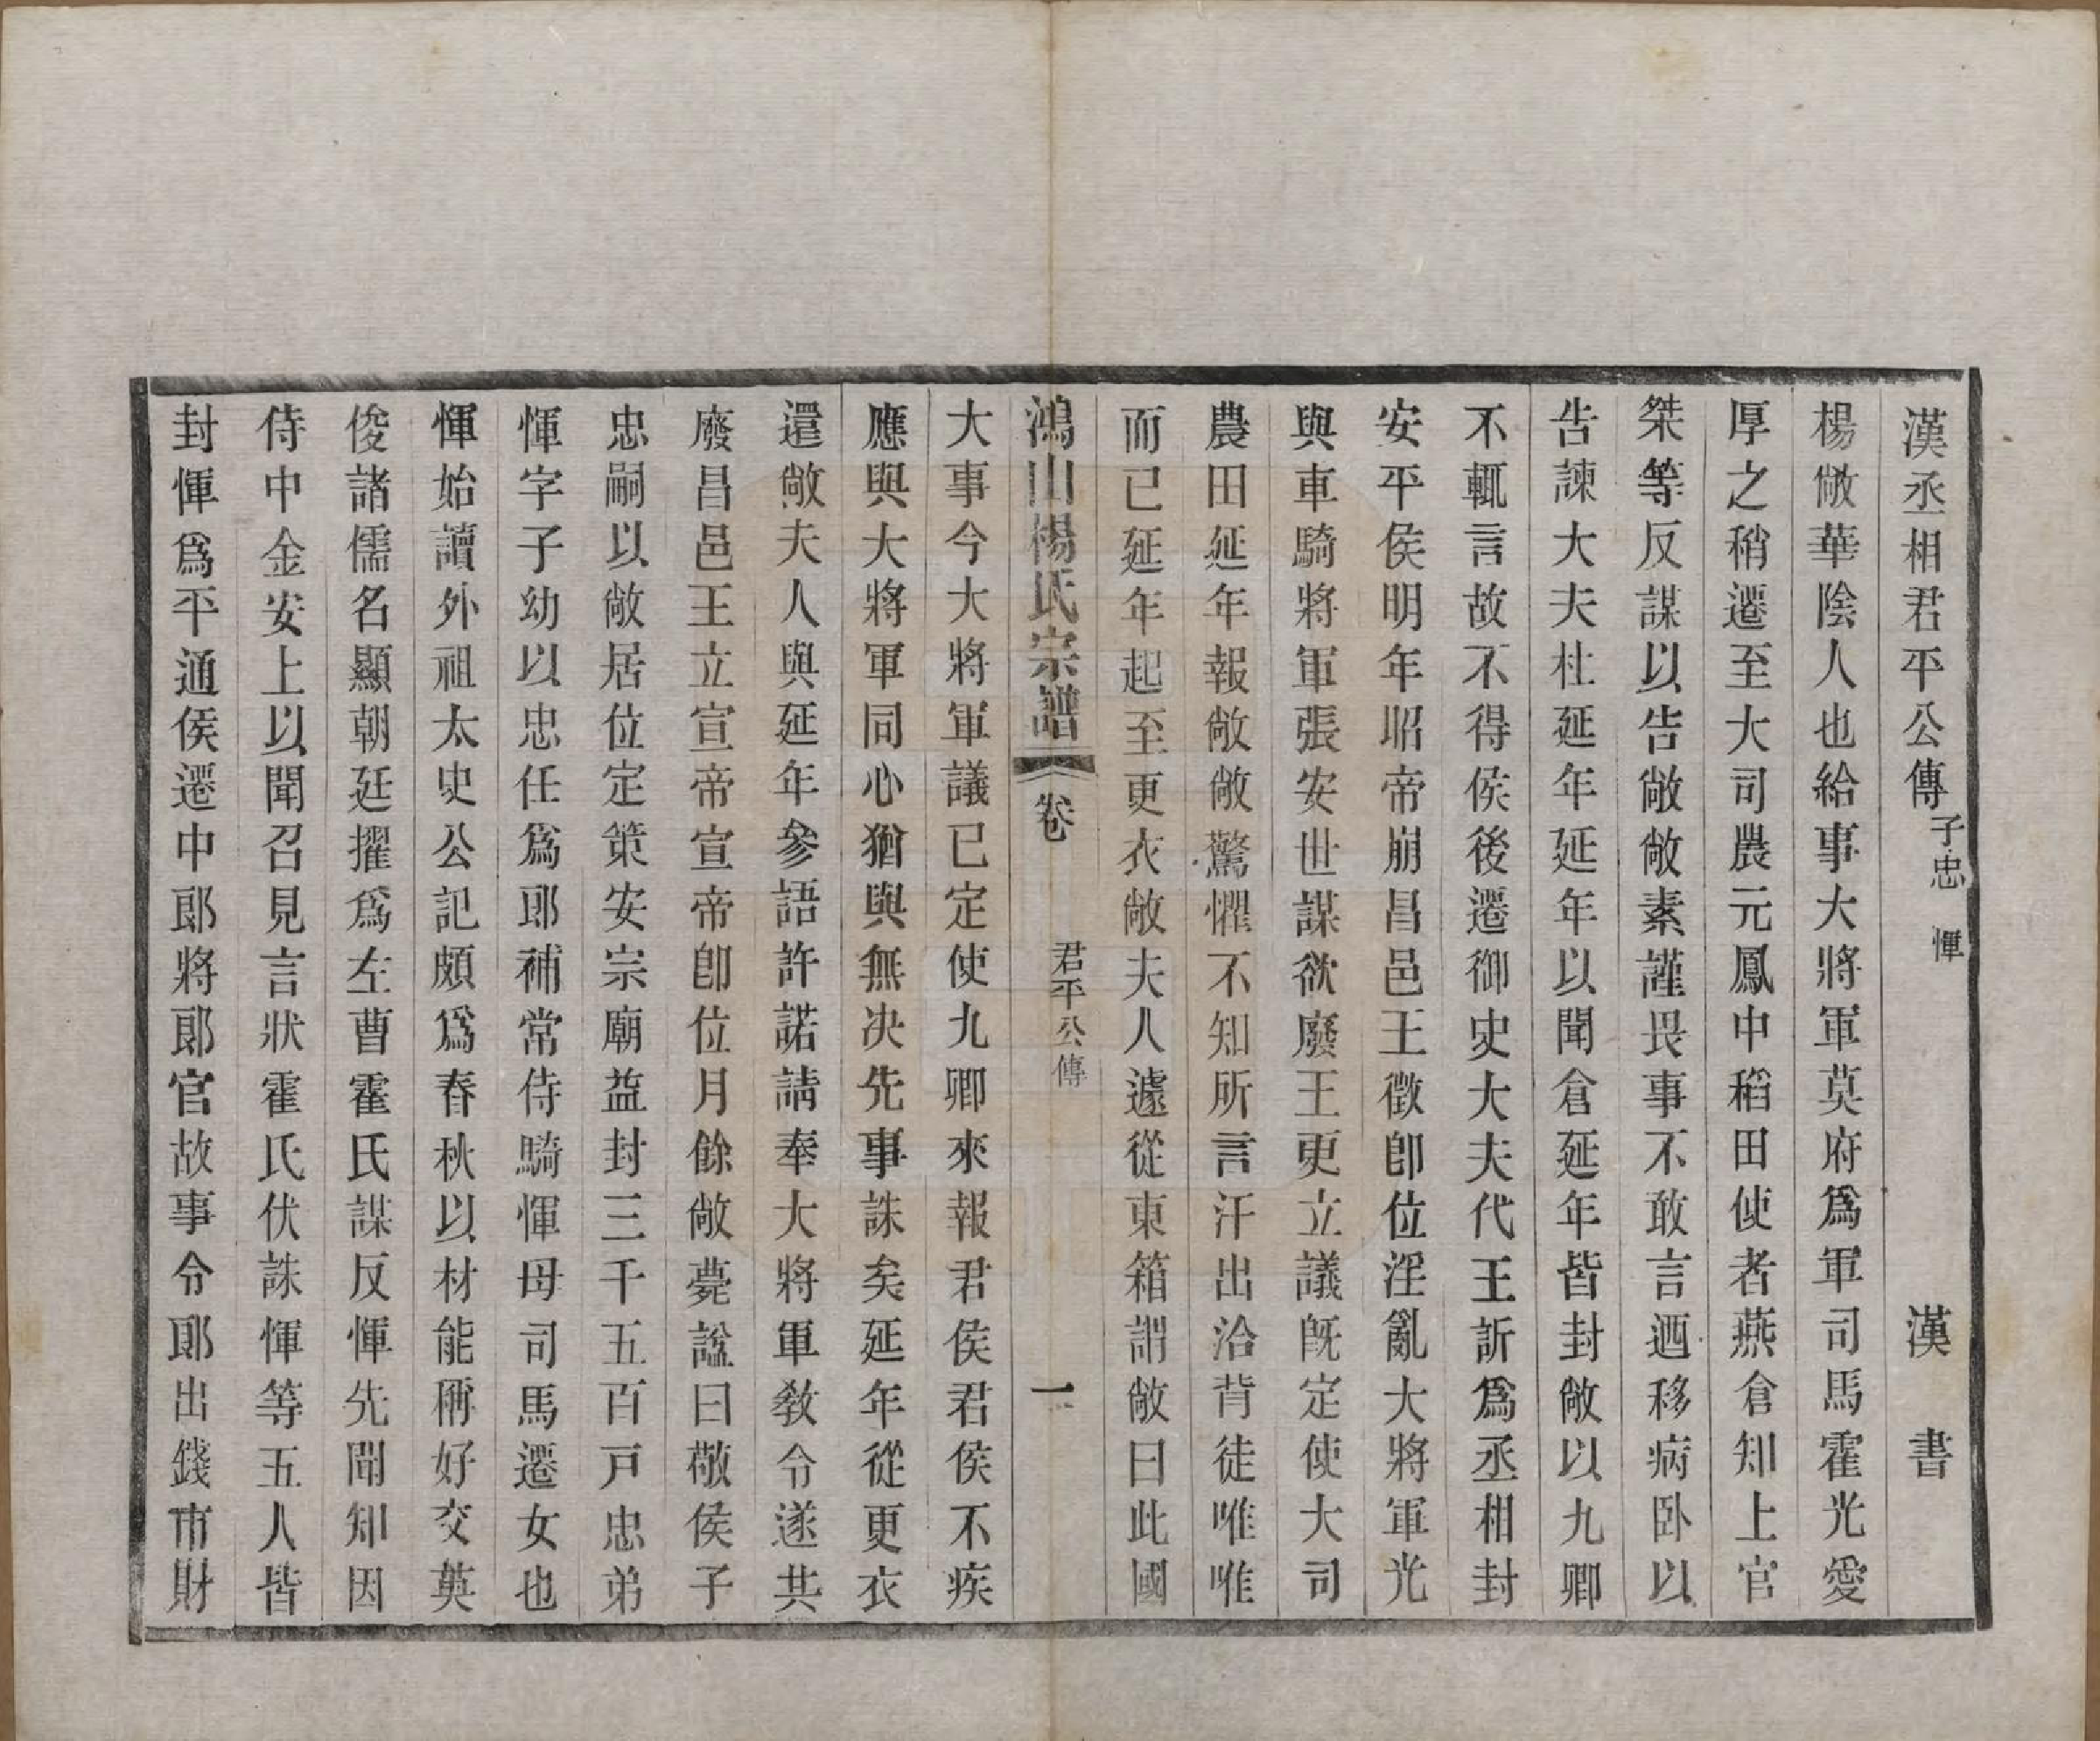 漢丞相君平公傳子忠 惲 漢書
楊敞華陰人也給事大將軍莫府爲軍司馬霍光愛
厚之稍遷至大司農元鳳中稻田使者燕倉知上官
桀等反謀以告敞敞素謹畏事不敢言迺移病臥以
告諫大夫杜延年延年以聞倉延年皆封敞以九卿
不輒言故不得侯後遷御史大夫代王訢爲丞相封
安平侯明年昭帝崩昌邑王徵卽位淫亂大將軍光
與車騎將軍張安世謀欲廢王更立議旣定使大司
農田延年報敞敞驚懼不知所言汗出洽背徒唯唯
而已延年起至更衣敞夫人遽從東箱謂敞曰此國
鴻山楊氏宗譜 卷 君平公傳 一
大事今大將軍議已定使九卿來報君侯君侯不疾
應與大將軍同心猶與無決先事誅矣延年從更衣
還敞夫人與延年參語許諾請奉大將軍敎令遂共
廢昌邑王立宣帝宣帝卽位月餘敞薨諡曰敬侯子
忠嗣以敞居位定策安宗廟益封三千五百戸忠弟
惲字子幼以忠任爲郎補常侍騎惲母司馬遷女也
惲始讀外祖太史公記頗爲春秋以材能稱好交英
俊諸儒名顯朝廷擢爲左曹霍氏謀反惲先聞知因
侍中金安上以聞召見言狀霍氏伏誅惲等五人皆
封惲爲平通侯遷中郎將郎官故事令郎出錢市財